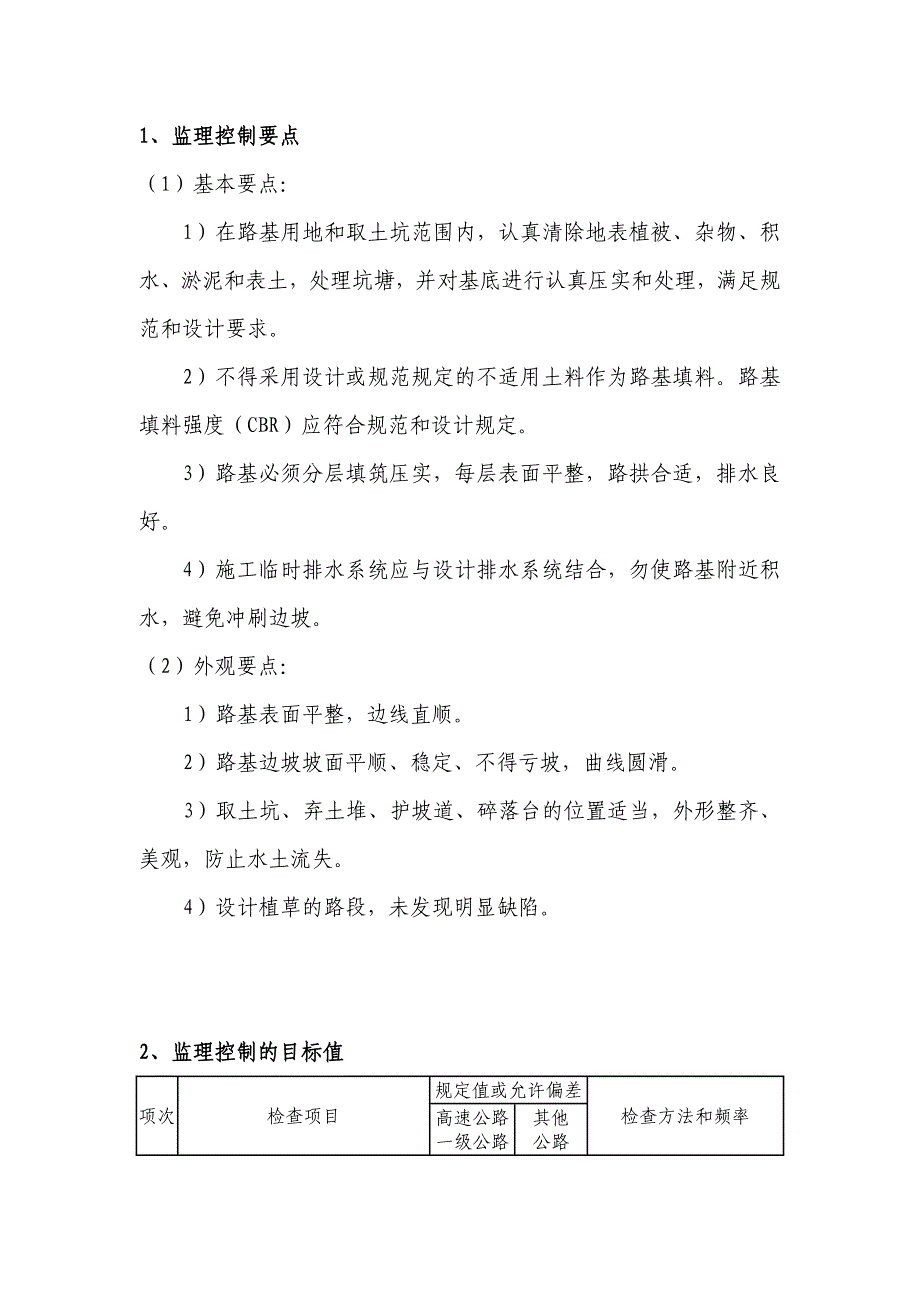 1、监理控制要点
（1）基本要点：
1）在路基用地和取土坑范围内，认真清除地表植被、杂物、积
水、淤泥和表土，处理坑塘，并对基底进行认真压实和处理，满足规
范和设计要求。
2）不得采用设计或规范规定的不适用土料作为路基填料。路基
填料强度（CBR）应符合规范和设计规定。
3）路基必须分层填筑压实，每层表面平整，路拱合适，排水良
好。
4）施工临时排水系统应与设计排水系统结合，勿使路基附近积
水，避免冲刷边坡。
（2）外观要点：
1）路基表面平整，边线直顺。
2）路基边坡坡面平顺、稳定、不得亏坡，曲线圆滑。
3）取土坑、弃土堆、护坡道、碎落台的位置适当，外形整齐、
美观，防止水土流失。
4）设计植草的路段，未发现明显缺陷。
2、监理控制的目标值
项次
检查项目
规定值或允许偏差
高速公路
一级公路
其他
公路
检查方法和频率